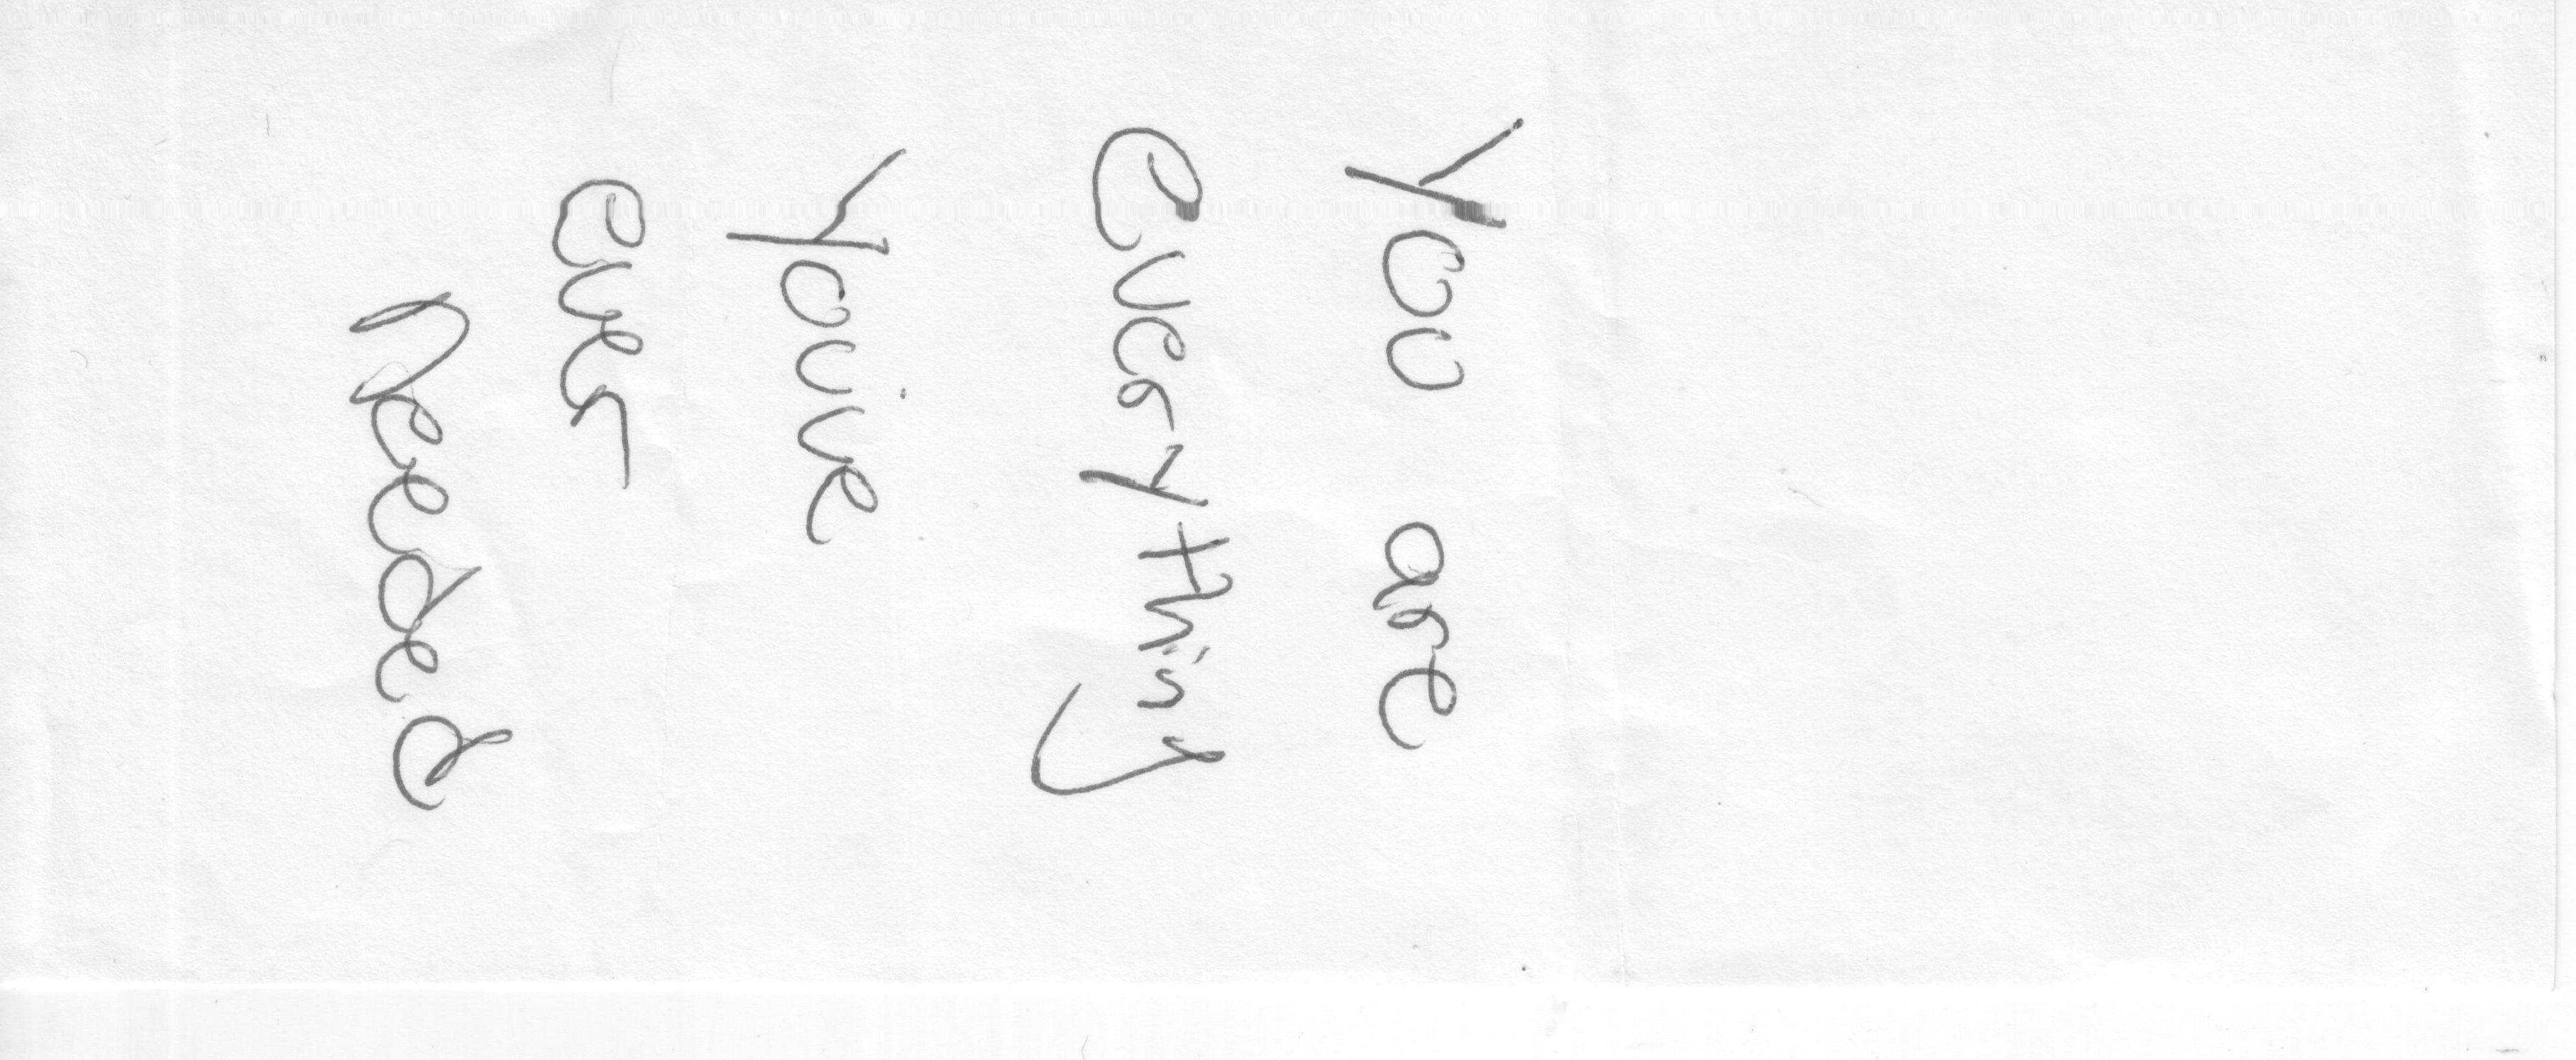 You are
everything
you've
ever
needed